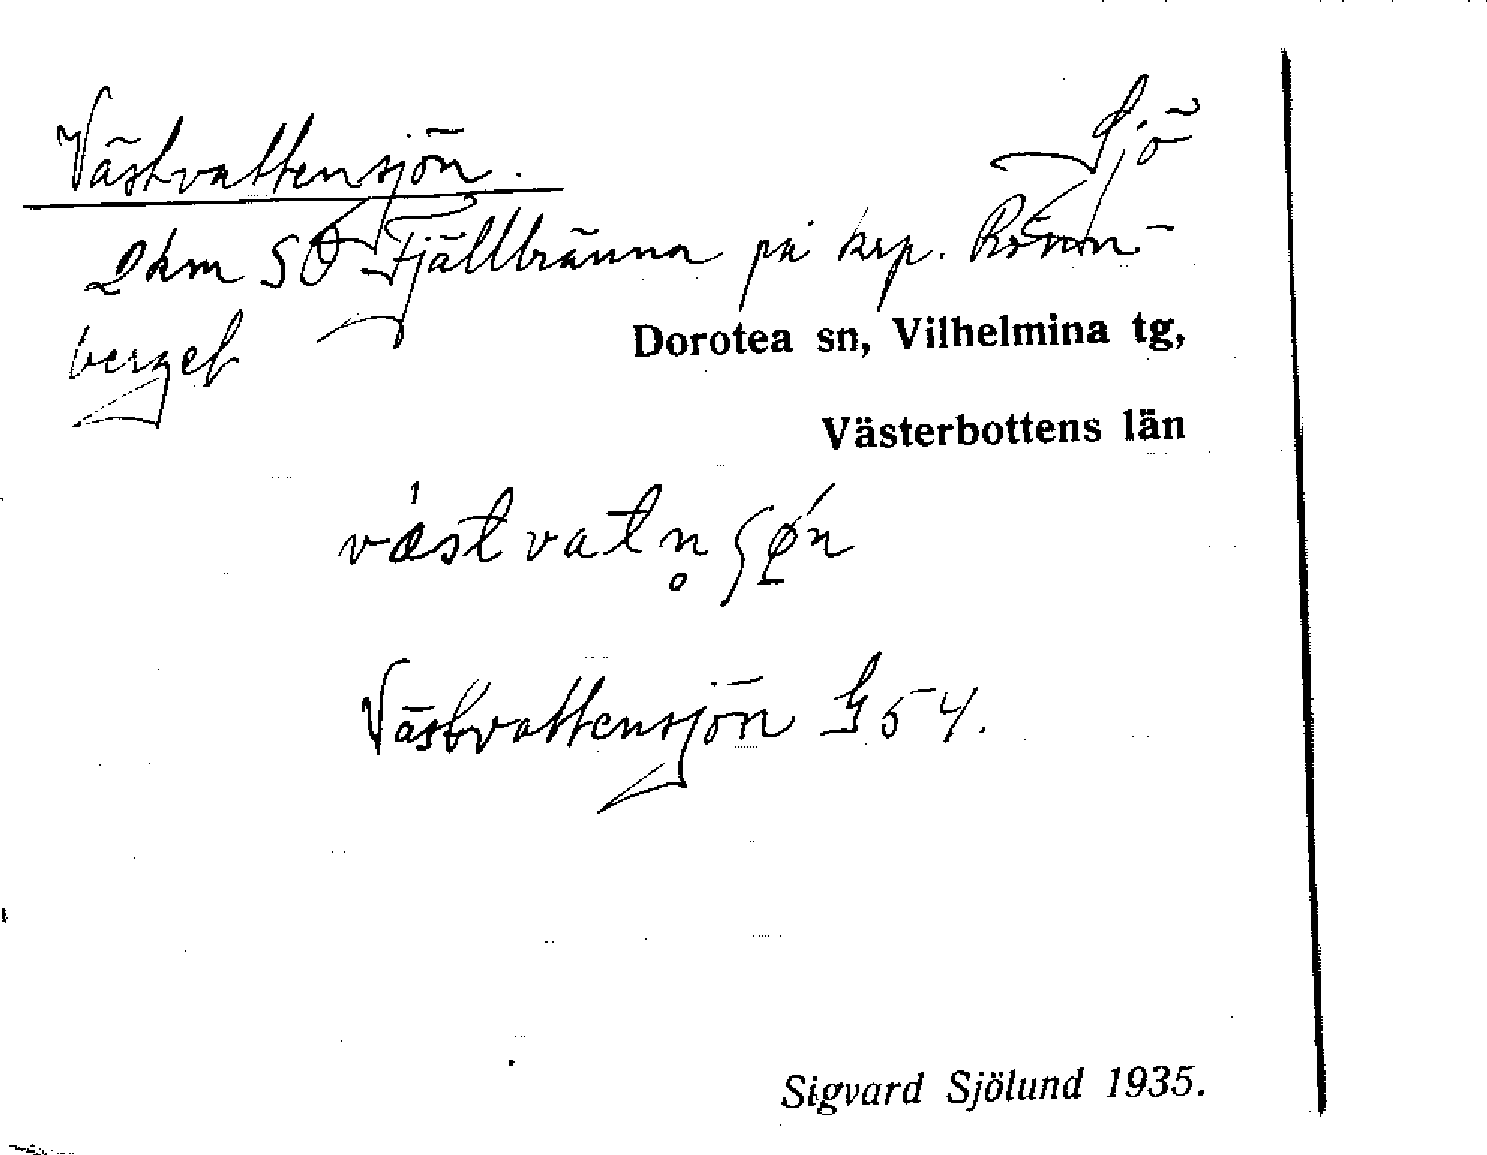 Västvattensjön.
Sjö
2 km SO Fjällbränna på krp. Rönn-
berget
Dorotea sn, Vilhelmina tg,
Västerbottens län
væ̀stvatn̥ʃøn
Västvattensjön G 54.
Sigvard Sjölund 1935.